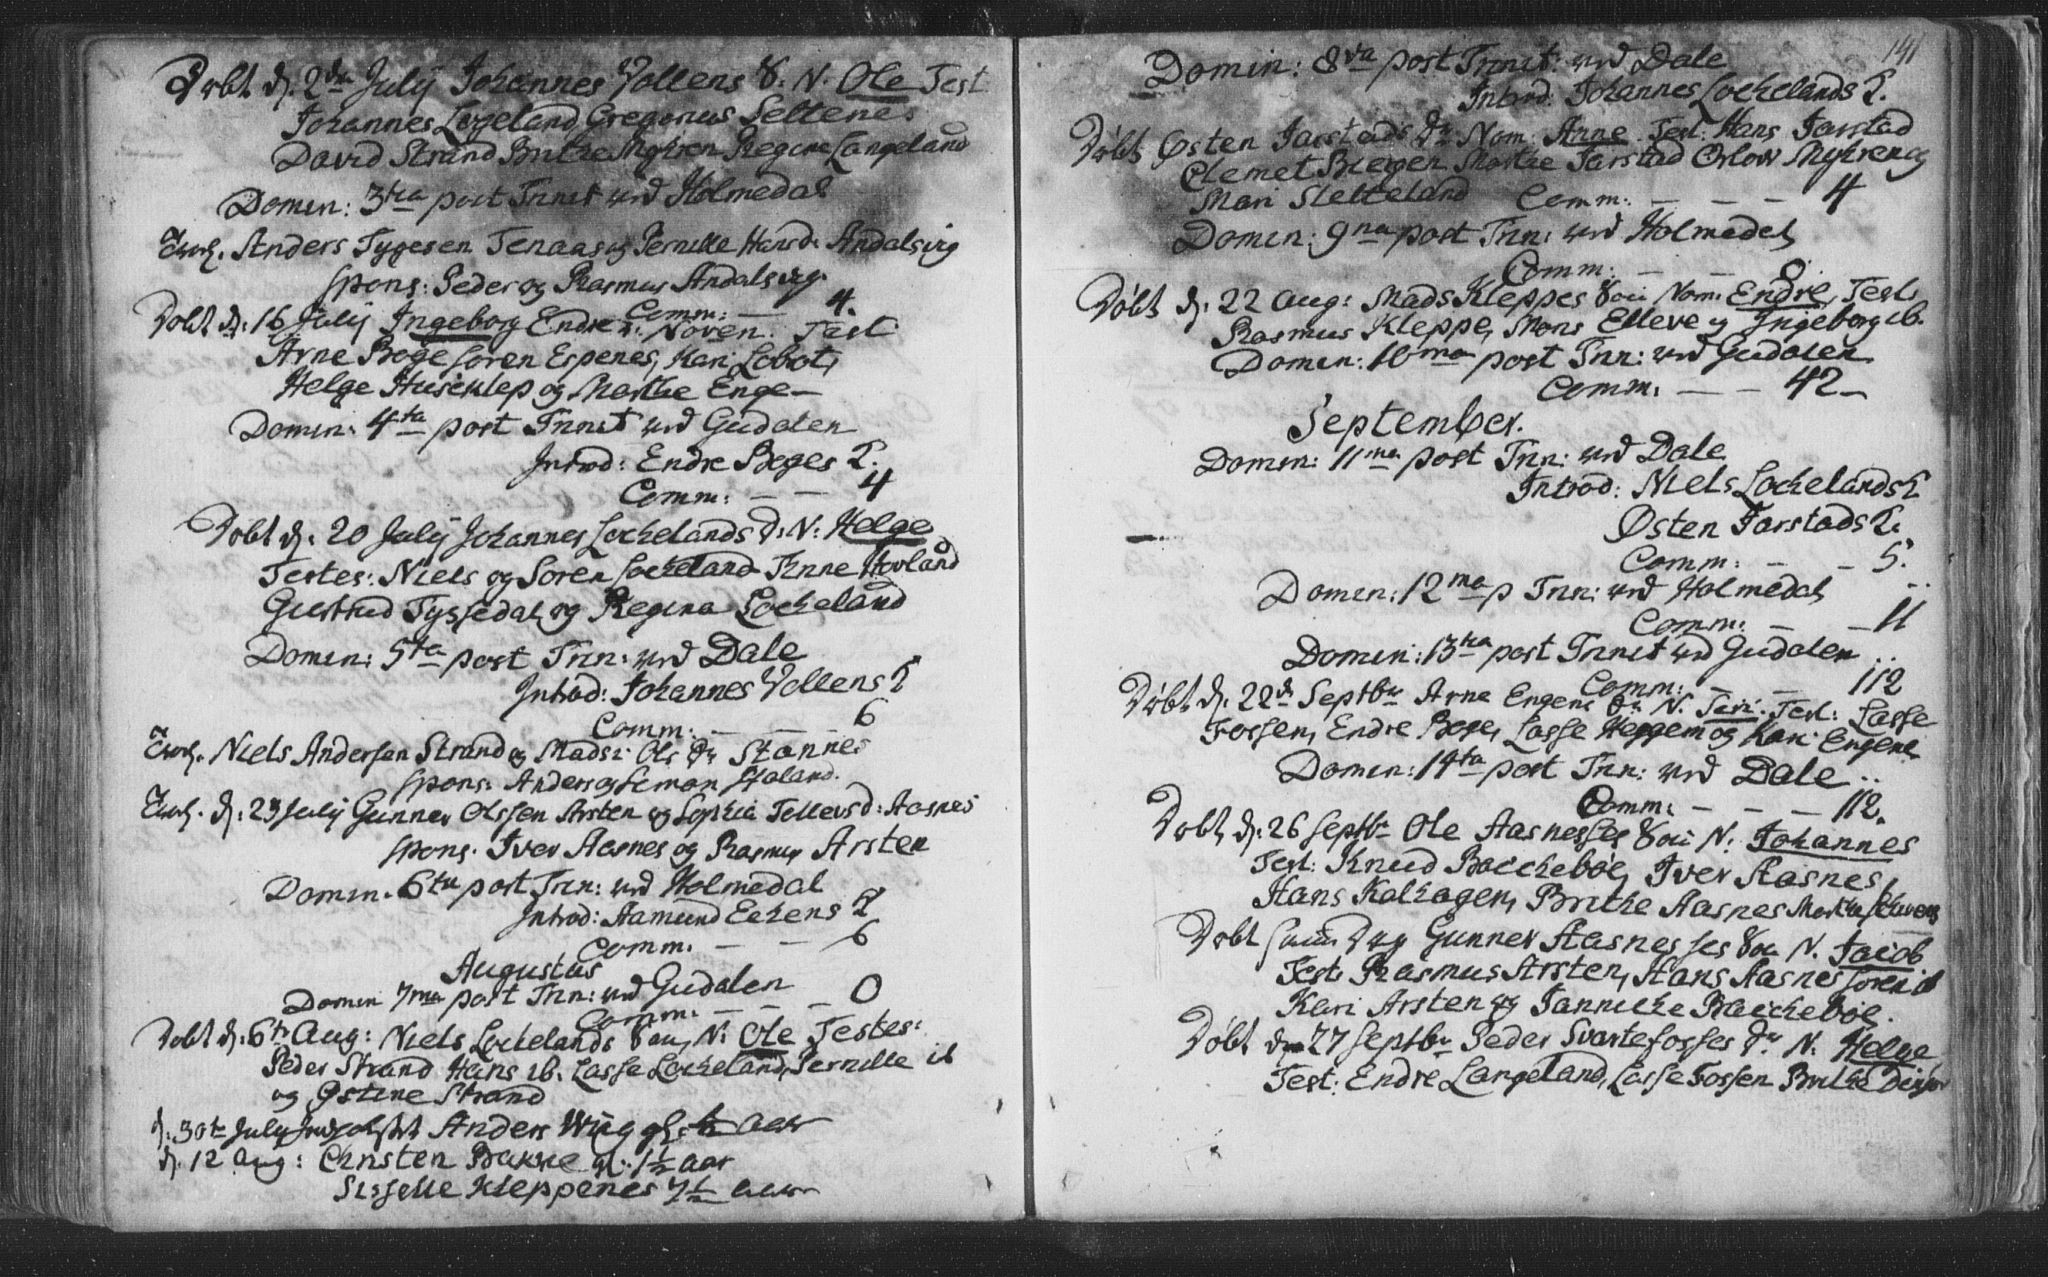 Døbt d. 2den Julij Johannes Vollens S. N. Ole Test
Johannes Logeland, Gregorius Seltenes
David Strand Brithe Myhren Regine Langeland
Domin: 3tia post Trinit ved Holmedal
Anders Tygesen Tenaas og Pernille Hansd. Andalsvig
spons: Peder og Rasmus Andalsvig.
Comm: — 4.
Døbt d. 16 Julij Ingeborg Endre Noven. Test
Arne Boge Soren Espenes, Kari Lobot,
Helge Huseklep og Marthe Enge —
Domin: 4ta post Trinit ved Gudalen
Introd: Endre Boges K.
Comm: — — 4
Døbt d. 20 Julij Johannes Lochelands d. N: Helge
Testes: Niels og Soren Locheland Anne Hovland
Giertrud Tyssedal og Regina Locheland
Domin: 5ta post Trin: ved Dale
Introd: Johannes Vollens K
Comm: — — 6
Niels Andersen Strand og Madsi Ols dr Stannes
spons: Anders og Simon
d. 29 Julij Gunner Olssen Arsten og Sophia Tellevsd: Aasnes
spons. Iver Aasnes og Rasmus Arsten
Domin. 6ta post Trin: ved Holmedal
Introd: Aamund Echens K
Comm. — — 6
Augustus
Domin 7ma post Trin: ved Gudalen
Comm: — — 0
Døbt d. 6te Aug: Niels Lochelands Søn N. Ole Testes:
Peder Strand Hans ib. Lasse Locheland, Pernille ib
og Østine Strand
d. 30te Julij Anders Wiig gl. ½ aar
d. 12 Aug: Christen Bakke gl. 1½ aar
Sisselle Kleppenes 7½ aar
141
Domin: 8va post Trinit: ved Dale
Introd: Johannes Lochelands K.
Døbt Østen Jarstads dr Nom. Anne. Test: Hans Jarstad
Clemet Biergen Marthe Jarstad Orlow Myhren og
Mari Sletteland Comm: — — — 4
Domin: 9na post Trin: ved Holmedal
Comm: — — 0.
Døbt d. 22 Aug: Mads Kleppes Søn Nom. Endre, Test.
Rasmus Kleppe, Mons Elleve og Ingeborg ib.
Domin: 10ma post Trin: ved Gudalen
Comm: — — 42 —
September.
Domin: 11ma post Trin: ved Dale
Introd: Niels Lochelands K
Østen Jarstads K.
Comm: — — 5.
Domin: 12ma p Trin: ved Holmedal
Comm: — — 11
Domin: 13tia post Trinit ved Gudalen
Comm: — — 112
Døbt d. 22d Septbr Arne Engens dr N. Siri. Test: Lasse
Fossen, Endre Boge, Lasse Heggem og Kari Engene
Domin: 14ta post Trin: ved Dale
Comm: — — — 112.
Døbt d. 26 Septbr Ole Aasnesses Søn N. Johannes
Test: Knud Baicheboe, Iver Aasnes,
Hans Kalhagen, Brithe Aasnes Marthe
Døbt samme Dag Gunner Aasnesses Søn N. Jacob
Test Rasmus Arsten, Hans Aasnes Soren ib
Kari Arsten og Jannicke Baicheboe.
Døbt d. 27 Septbr Peder Svartefosses dr N. Helge
Test: Endre Langeland, Lasse Fossen Brithe